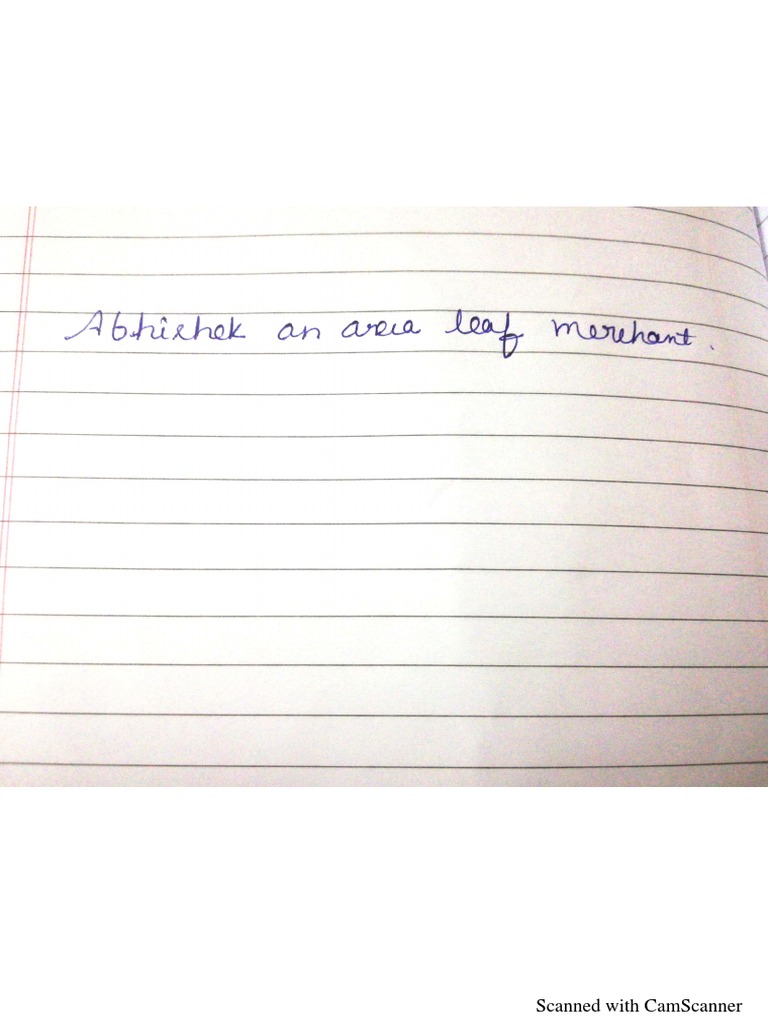 Abhishek an area leaf merchant.
Scanned with CamScanner